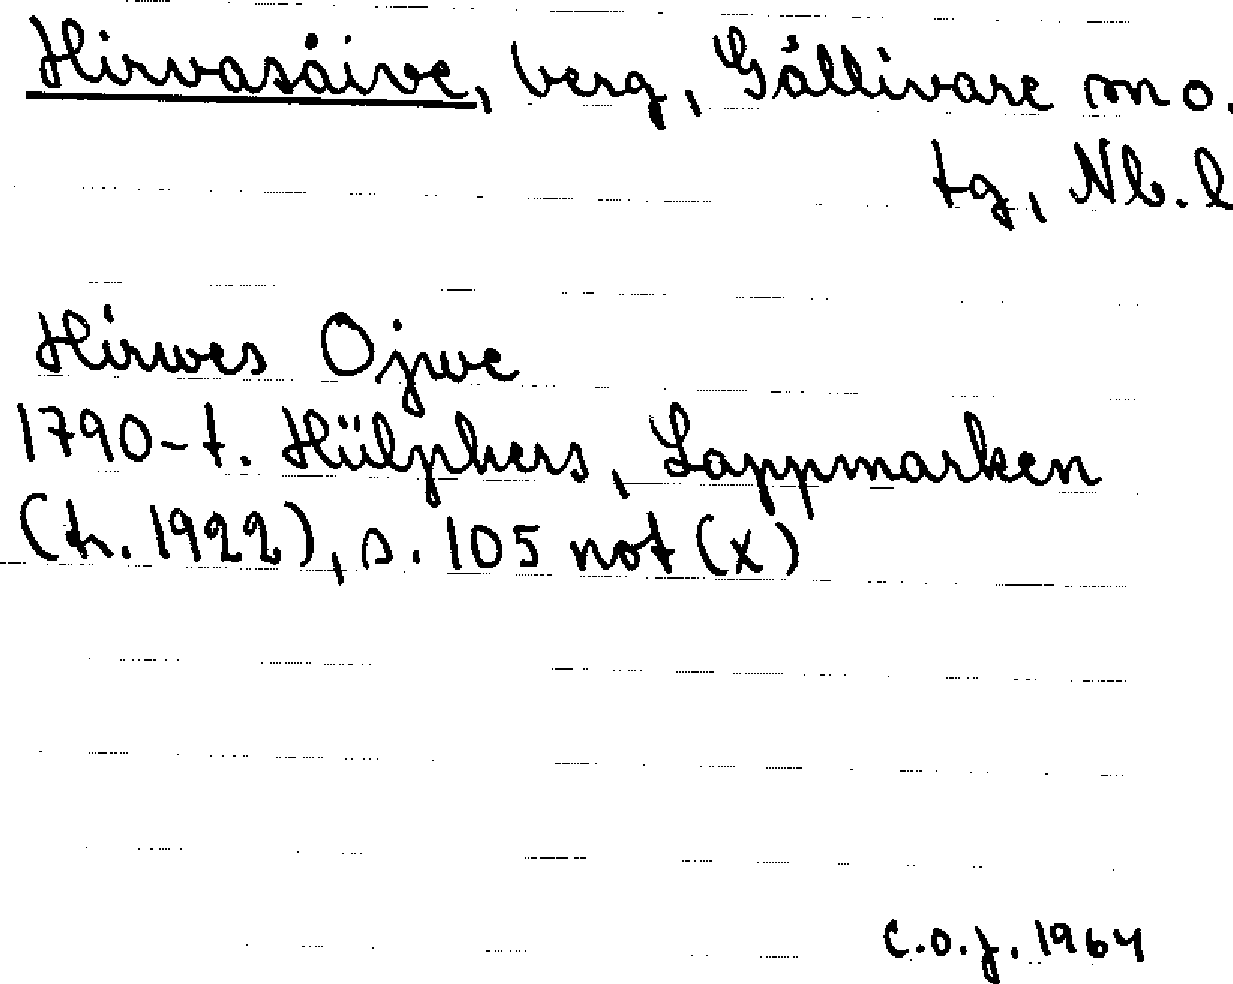 Hirvasåive, berg, Gällivare sn o.
tg, Nb. l
Hirwes Ojwe
1790-t. Hülphers, Lappmarken
(tr. 1922), s. 105 not (x)
C.O.J. 1964